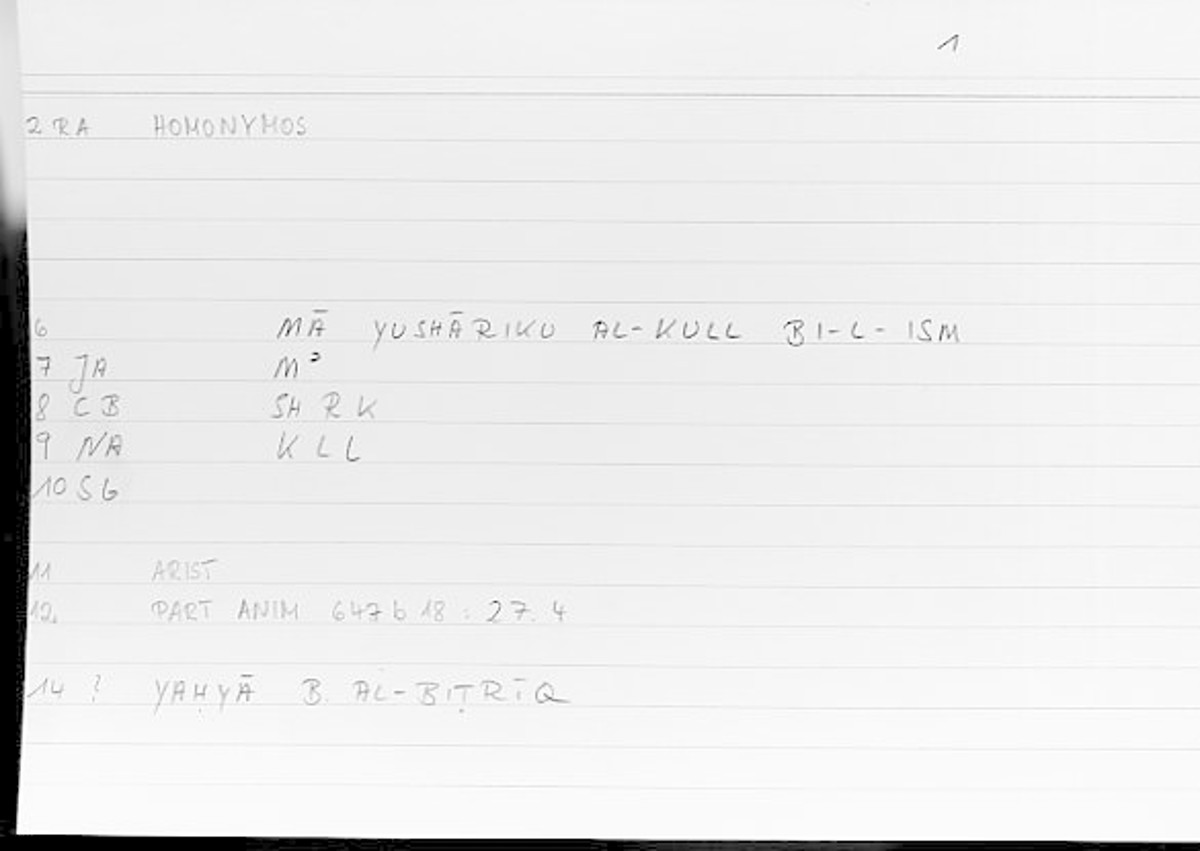 1
2 RA HOMONYMOS
6 MĀ YUSHĀRIKU AL-KULL BI-L-ISM
7 JA Mʾ
8 CB SH R K
9 NA K L L
10 SG
11 ARIST
12. PART ANIM 647 b 18 : 27.4
14 ? YAḤYĀ B. AL-BIṬRĪQ